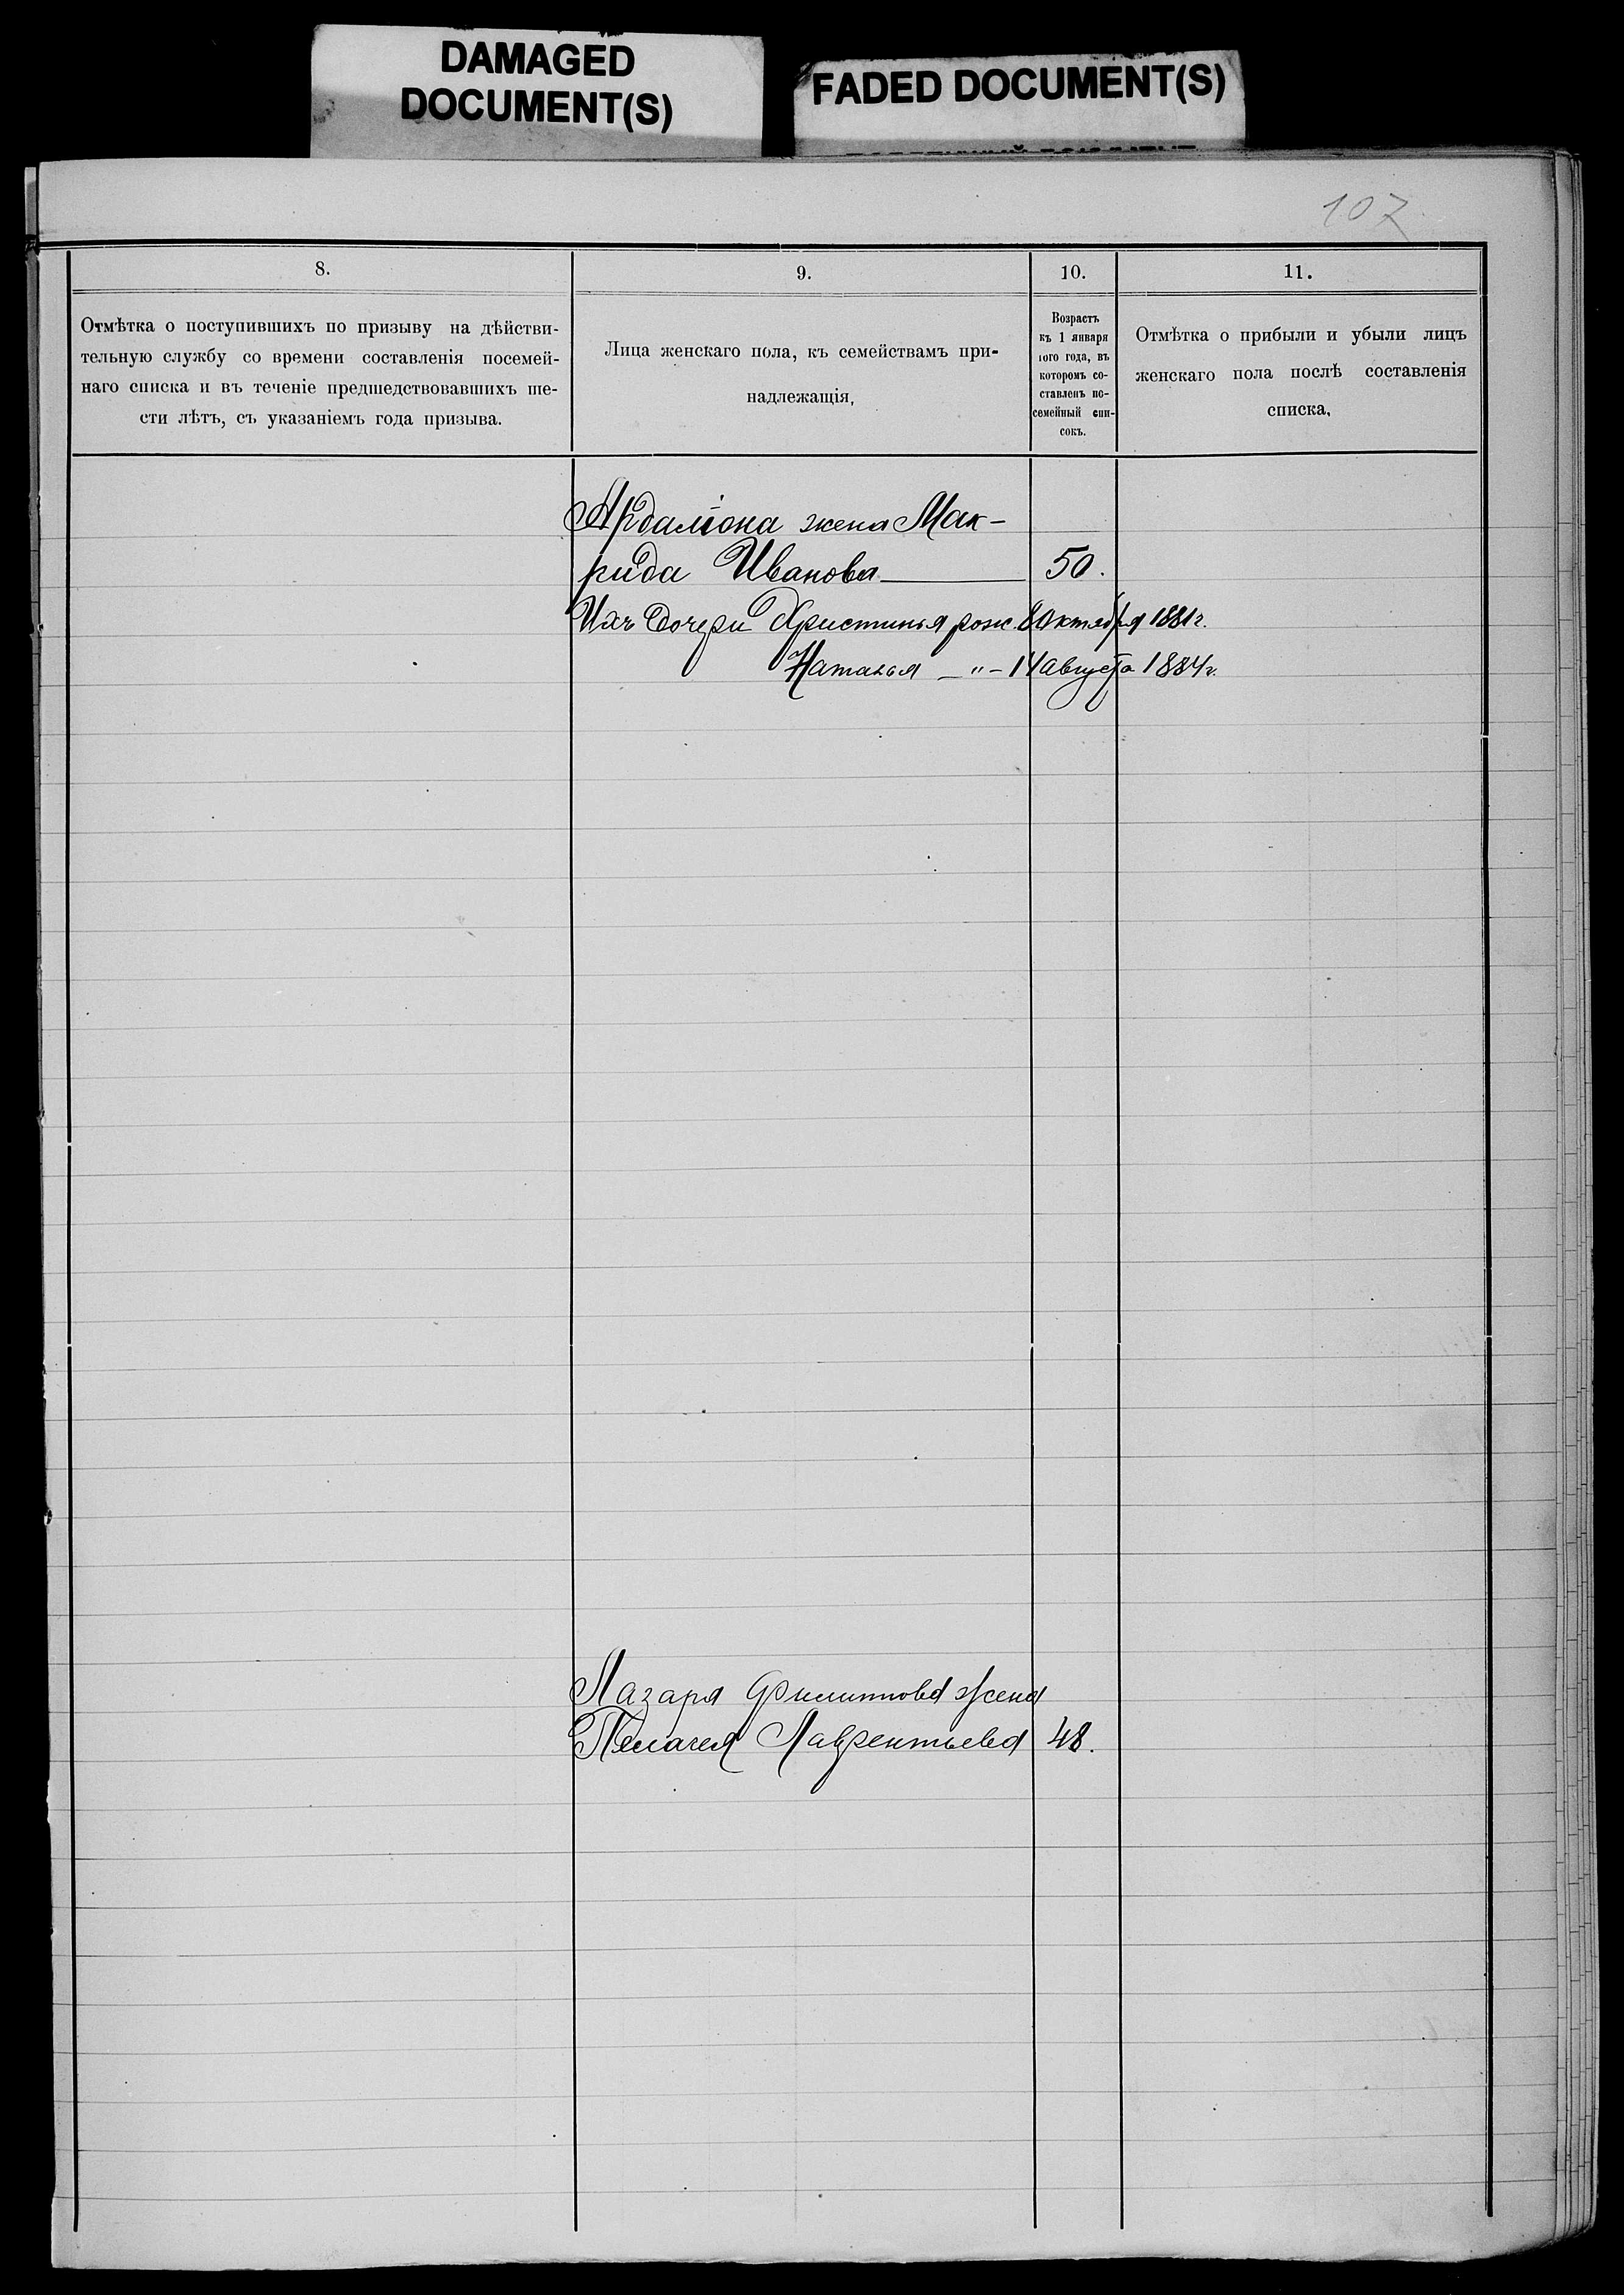 DAMAGED
DOCUMENT(S)
FADED DOCUMENT(S)
107
8.
Отмѣтка о поступившихъ по призыву на дѣйстви-
тельную службу со времени составленія посемей-
наго списка и въ теченіе предшедствовавшихъ ше-
сти лѣтъ, съ указаніемъ года призыва.
9.
Лица женскаго пола, къ семействамъ при-
надлежащія,
10.
Возрастъ
къ 1 января
того года, въ
которомъ со-
ставленъ по-
семейный спи-
сокъ.
11.
Отмѣтка о прибыли и убыли лицъ
женскаго пола послѣ составленія
списка,
Ардаліона жена Мак-
рида Иванова 50.
Ихъ дочери Христинья рож. 8 октября 1881 г.
Наталья — " — 14 августа 1884 г.
Лазаря Филиппова жена
Пелагея Лаврентьева 48.